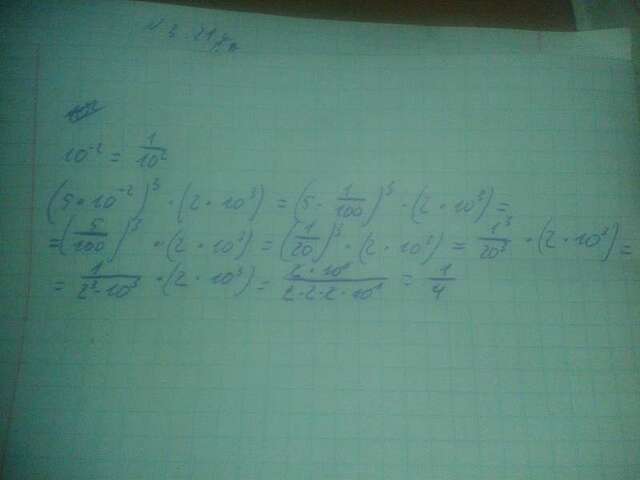 10⁻² = 1/10²
(5 · 10⁻²)³ · (2 · 10³) = (5 · 1/100)³ · (2 · 10³) =
= (5/100)³ · (2 · 10³) = (1/20)³ · (2 · 10³) = 1³/20³ · (2 · 10³) =
= 1/(2³ · 10³) · (2 · 10³) = (2 · 10³)/(2 · 2 · 2 · 10³) = 1/4